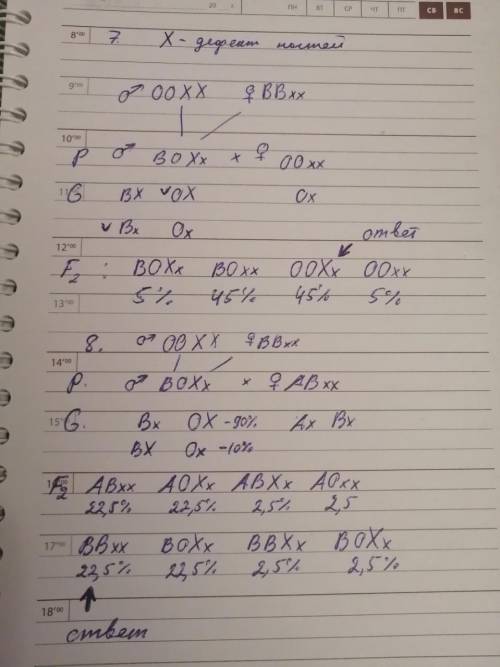 20 ПН ВТ СР ЧТ ПТ СБ ВС
8°⁰⁰ 7. X - дефект ногтей
9°⁰⁰ ♂ OOXX ♀ BBxx
10°⁰⁰
P ♂ BOXx × ♀ OOxx
G BX ✓OX Ox
✓Bx Ox
12°⁰⁰ ответ
F₂ : BOXx BOxx OOXx OOxx
5% 45% 45% 5%
13°⁰⁰
8. ♂ OOXX ♀BBxx
14°⁰⁰
P. ♂ BOXx × ♀ABxx
15°⁰⁰ G. Bx OX -90% Ax Bx
BX Ox -10%
F₂ ABxx AOXx ABXx AOxx
22,5% 22,5% 2,5% 2,5
17°⁰⁰ BBxx BOXx BBXx BOXx
22,5% 22,5% 2,5% 2,5%
18°⁰⁰
ответ